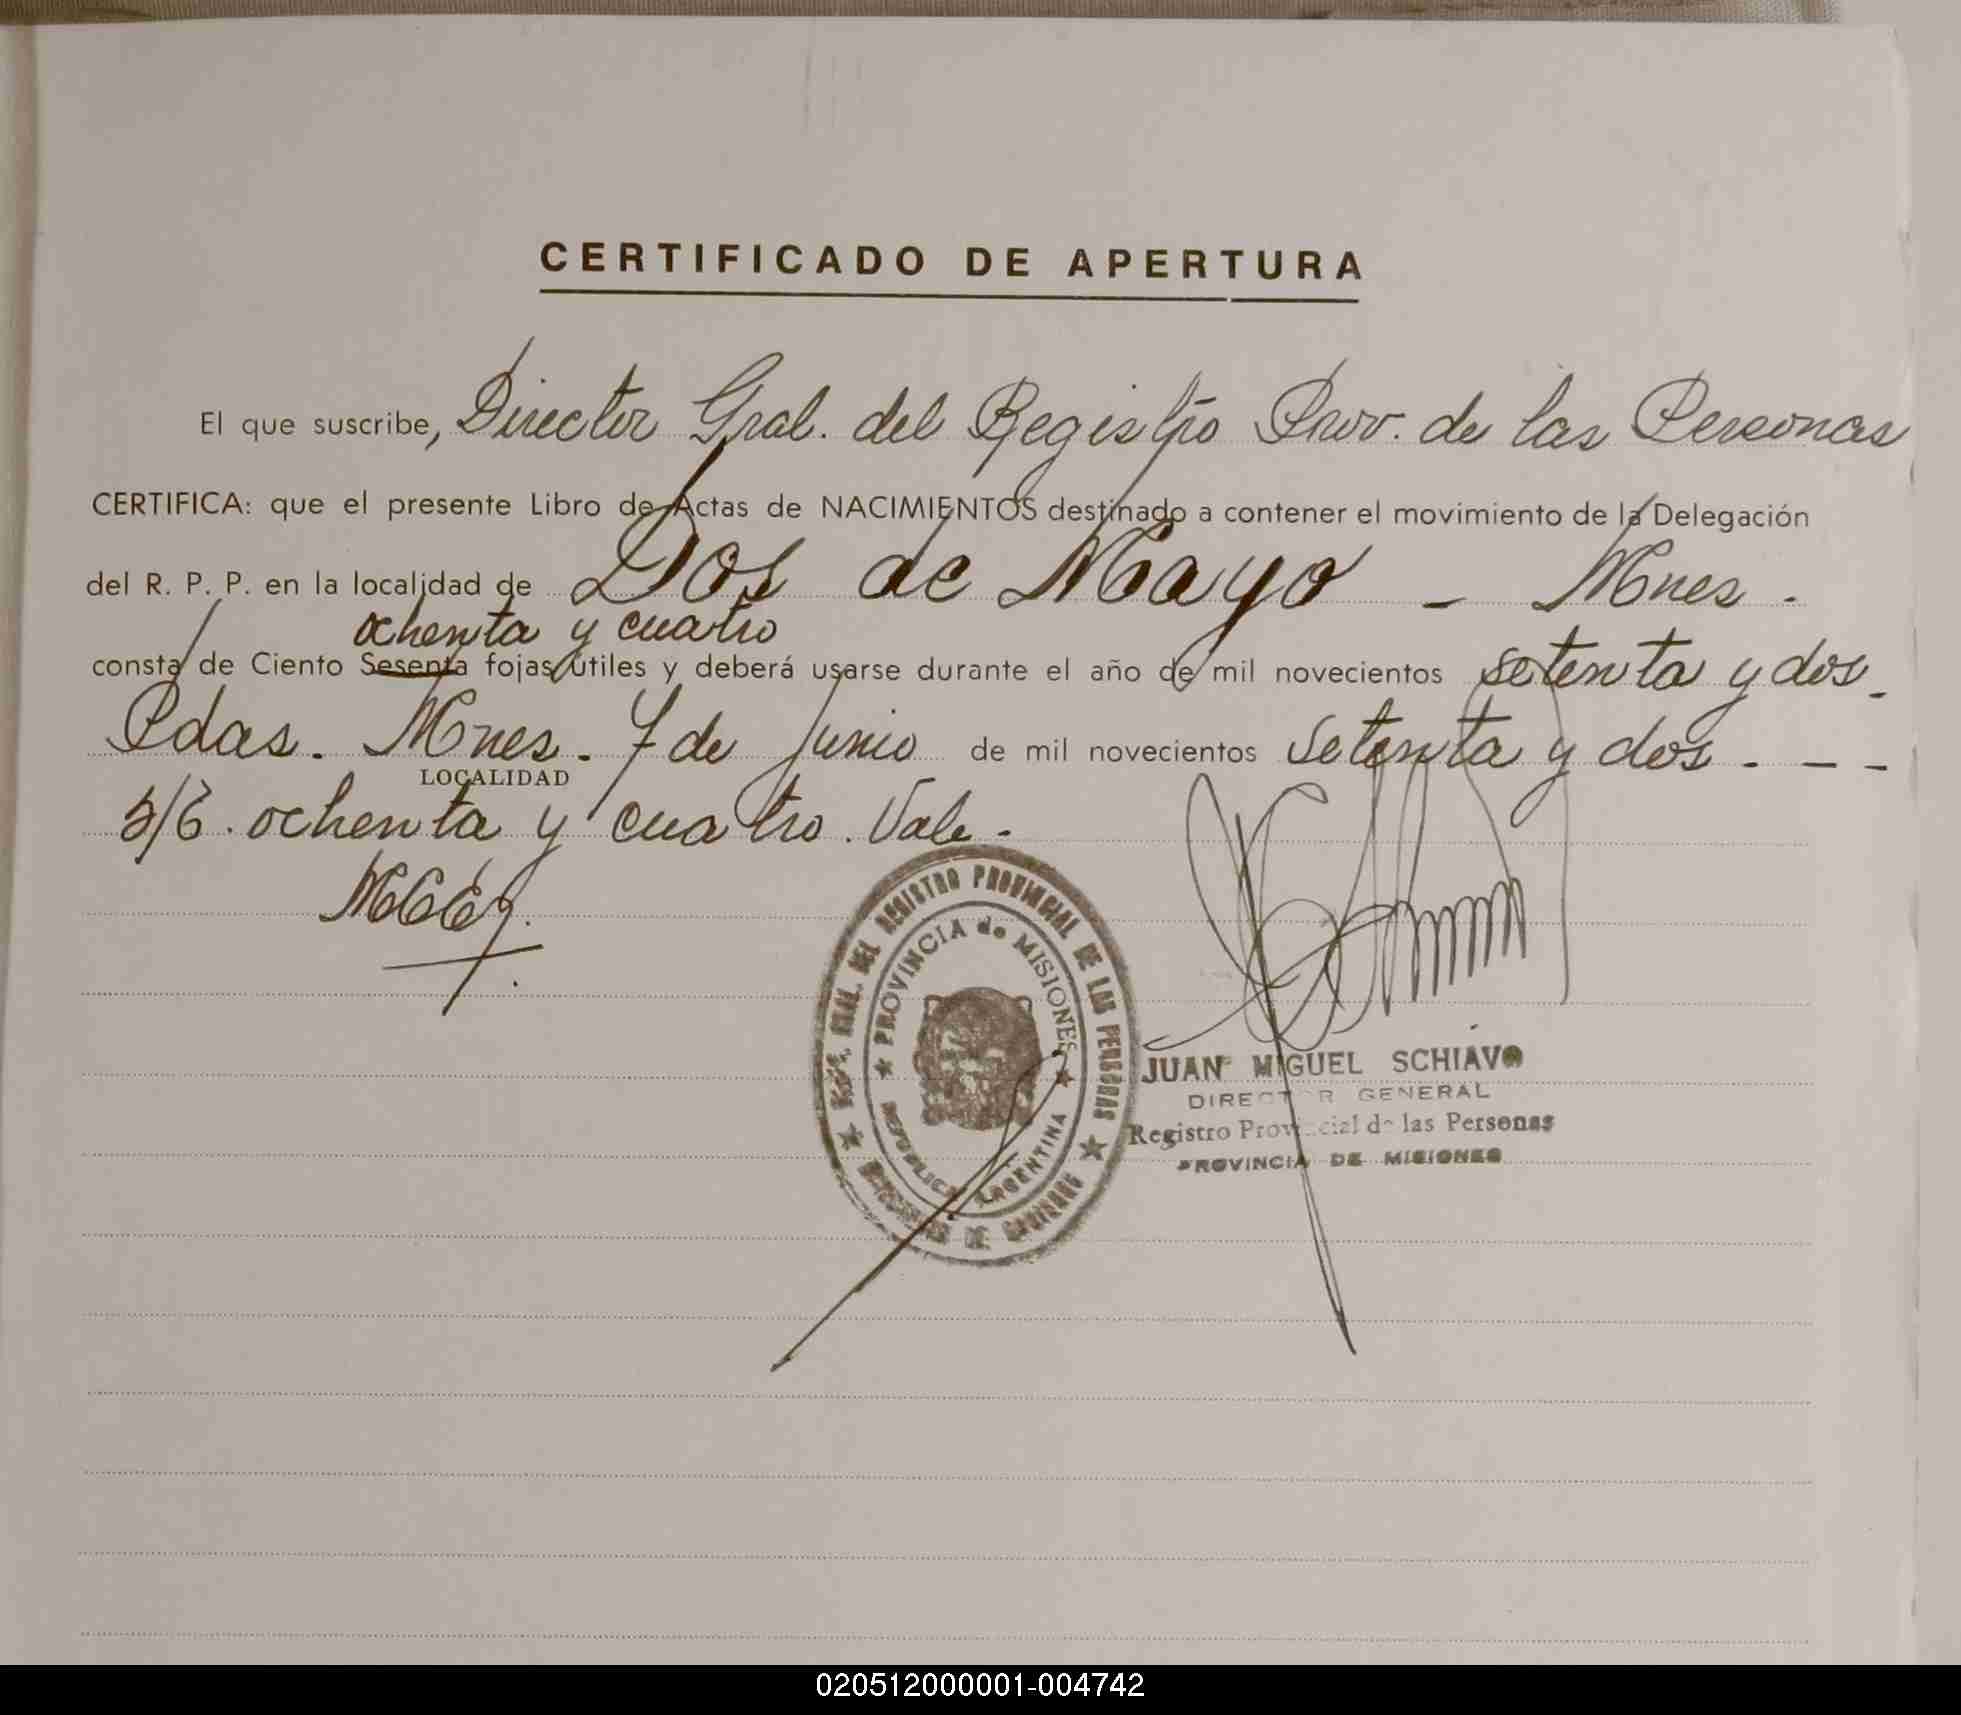 CERTIFICADO DE APERTURA
El que suscribe, Director Gral. del Registro Prov. de las Personas
CERTIFICA: que el presente Libro de Actas de NACIMIENTOS destinado a contener el movimiento de la Delegación
del R. P. P. en la localidad de Dos de Mayo - Mnes.
ochenta y cuatro
consta de Ciento Sesenta fojas útiles y deberá usarse durante el año de mil novecientos setenta y dos.
Pdas. Mnes. 7 de junio de mil novecientos setenta y dos. - -
LOCALIDAD
ochenta y cuatro. Vale.
GRAL. DEL REGISTRO PROVINCIAL DE LAS PERSONAS
PROVINCIA de MISIONES
REPUBLICA ARGENTINA
MINISTERIO DE GOBIERNO
JUAN MIGUEL SCHIAVO
DIRECTOR GENERAL
Registro Provincial de las Personas
PROVINCIA DE MISIONES
020512000001-004742